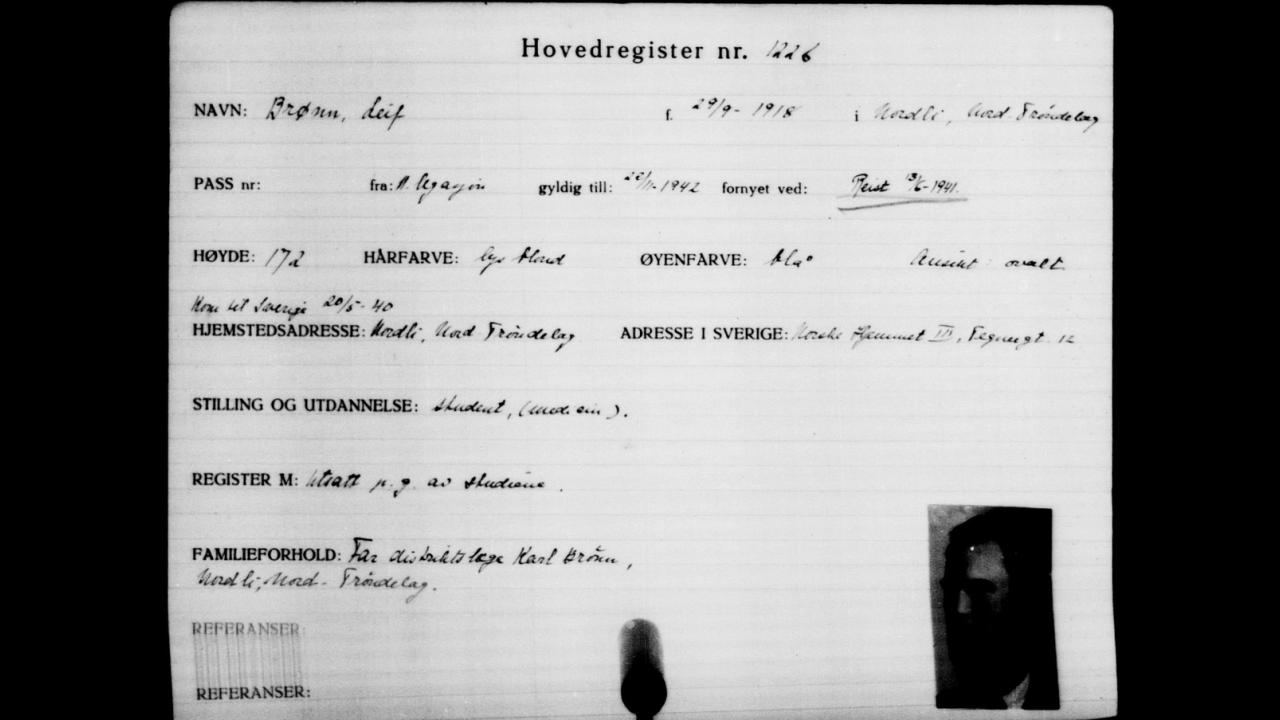 Hovedregister nr. 1226
NAVN: Brønn, Leif f. 29/9-1918 i Nordli, Nord-Trøndelag
PASS nr: fra: gyldig till: 1942 fornyet ved: Reist 1941.
HØYDE: 172 HÅRFARVE: lys blond ØYENFARVE: blå Ansikt: ovalt
Kom til Sverige 20/5-40
HJEMSTEDSADRESSE: Nordli, Nord Trøndelag ADRESSE I SVERIGE: Norske Hjemmet III, Tegnergt. 12
STILLING OG UTDANNELSE: student, (medisin).
REGISTER M: Utsatt p.g. av studiene.
FAMILIEFORHOLD: Far distriktslæge Karl Brönn,
Nordli, Nord-Tröndelag.
REFERANSER:
REFERANSER: